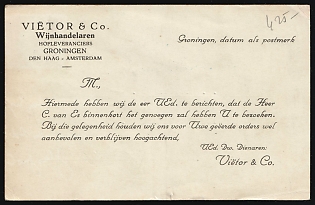 425-
VIËTOR & Co.
Wijnhandelaren
HOFLEVERANCIERS
GRONINGEN
DEN HAAG - AMSTERDAM
Groningen, datum als postmerk
M.,
Hiermede hebben wij de eer UEd. te berichten, dat de Heer
C. van Es binnenkort het genoegen zal hebben U te bezoeken.
Bij die gelegenheid houden wij ons voor Uwe geëerde orders wel
aanbevolen en verblijven hoogachtend,
UEd. Dw. Dienaren:
Viëtor & Co.